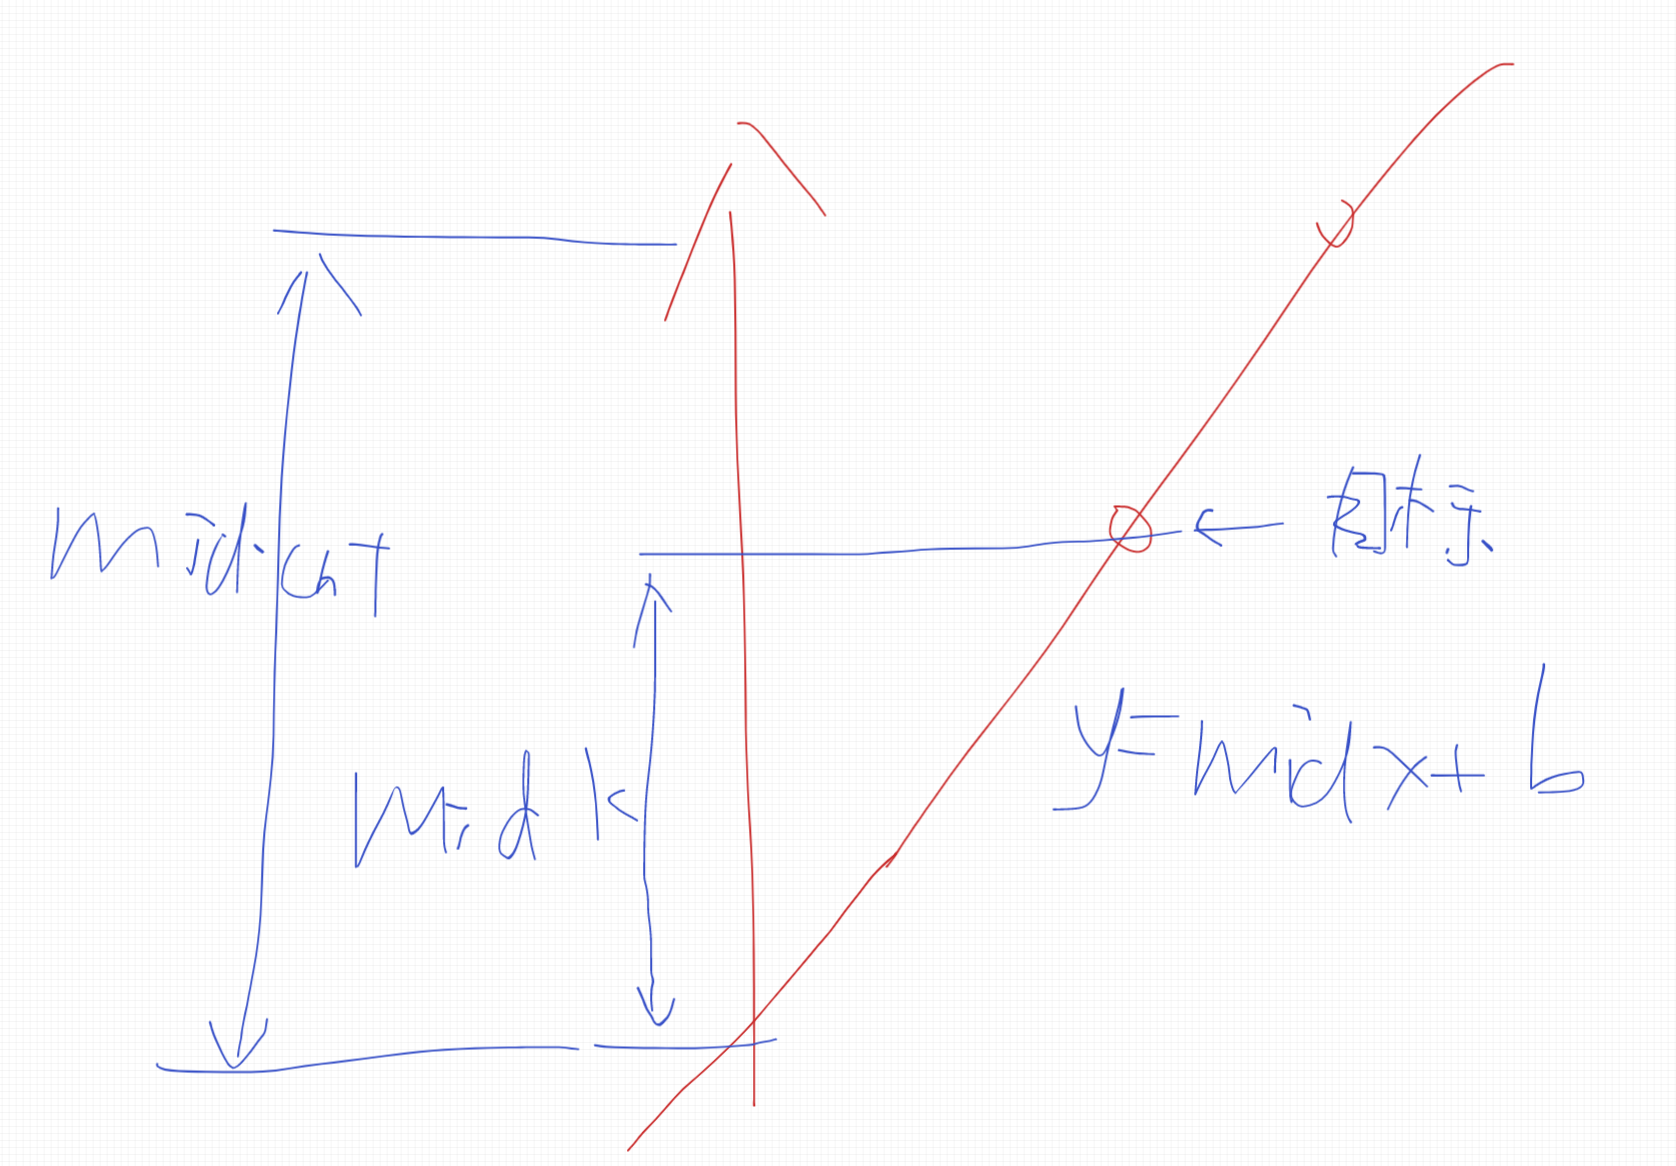 mid·cnt
目标
mid k
y=midx+b